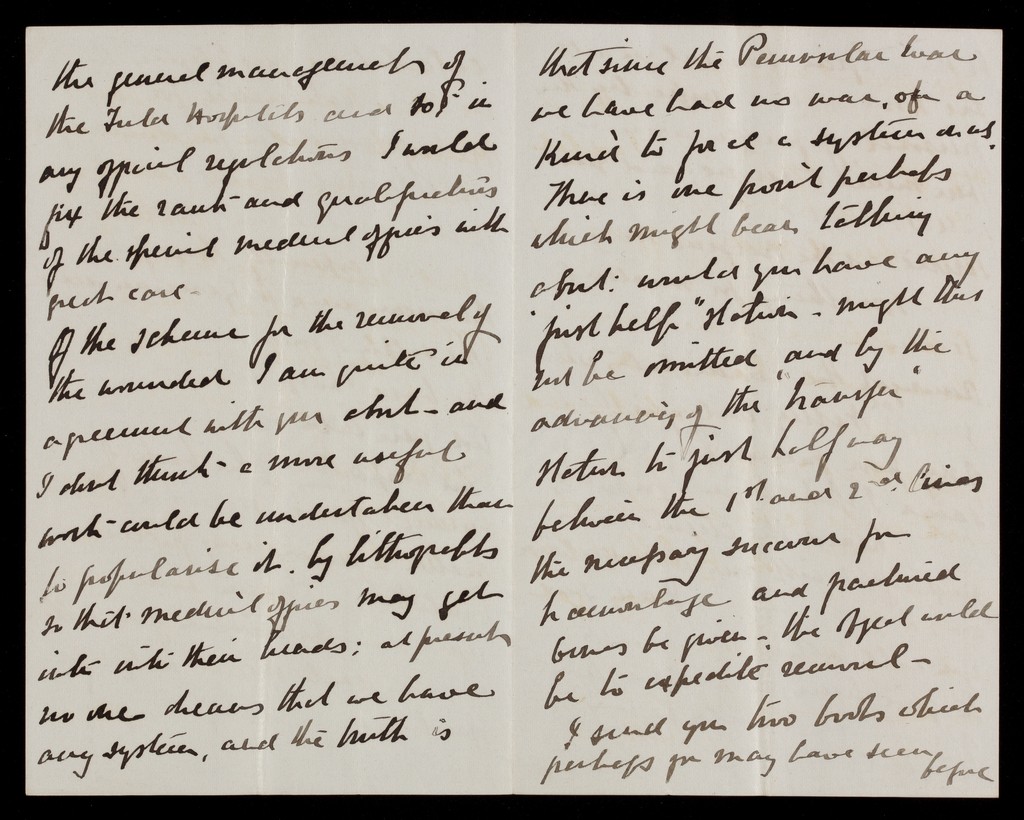 the general management of
the Field Hospitals and so in
any official regulations I would
fix the rank and qualifications
of the special medical officers with
great care -
Of the scheme for the removal of
the wounded I am quite in
agreement with you about - and
I dont think a more useful
work could be undertaken than
to popularise it. by lithographs
so that medical officers may get
into their heads; at present
no one dreams that we have
any system, and the truth is
that since the Peninsular War
we have had no war, of a
kind to force a system on us.
There is one point perhaps
which might bear talking
about: would you have any
"just help" station - might this
not be omitted and by the
advancing of the "transfer"
station to just half way
between the 1st and 2nd lines
the necessary succour for
haemorrhage and fractured
bones be given - the object would
be to expedite removal -
I send you two books which
perhaps you may have seen
before